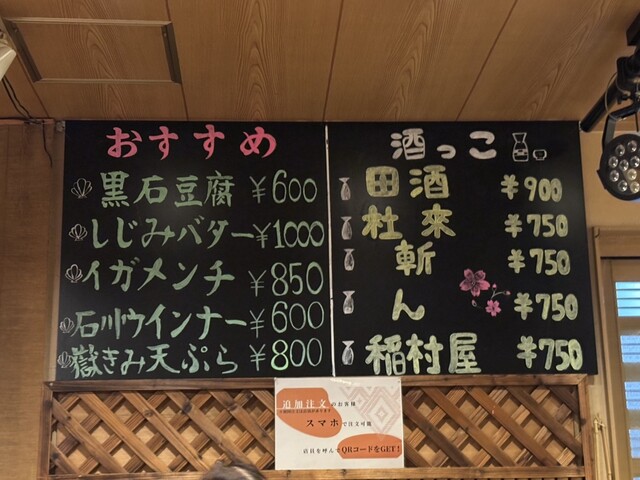 おすすめ
黒石豆腐 ¥600
しじみバター ¥1000
イガメンチ ¥850
石川ウインナー ¥600
嶽きみ天ぷら ¥800
酒っこ
田酒 ¥900
杜來 ¥750
斬 ¥750
ん ¥750
稲村屋 ¥750
追加注文のお客様
スマホで注文可能
店員を呼んでQRコードをGET!